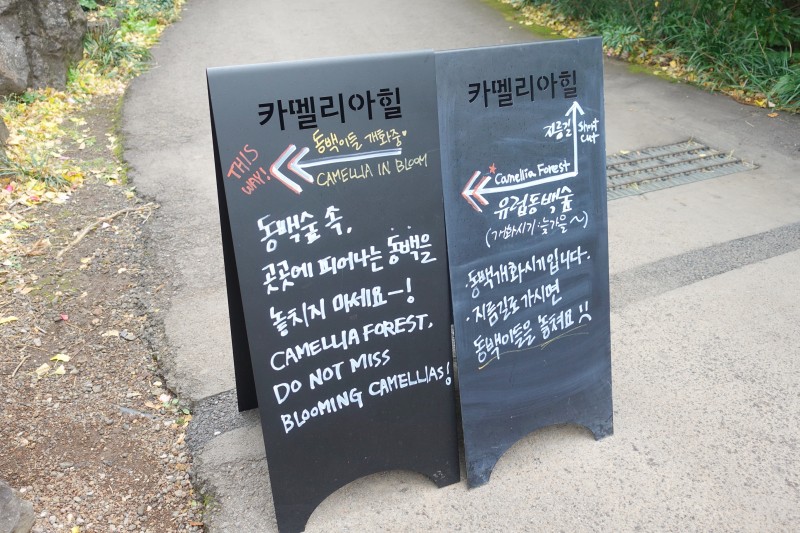 카멜리아힐
동백이들 개화중♥
THIS WAY!
CAMELLIA IN BLOOM
동백숲 속,
곳곳에 피어나는 동백을
놓치지 마세요-!
CAMELLIA FOREST,
DO NOT MISS
BLOOMING CAMELLIAS!
카멜리아힐
지름길 Short Cut
Camellia Forest
유럽동백숲
(개화시기:늦가을~)
·동백개화시기입니다.
·지름길로 가시면
동백이들을 놓쳐요